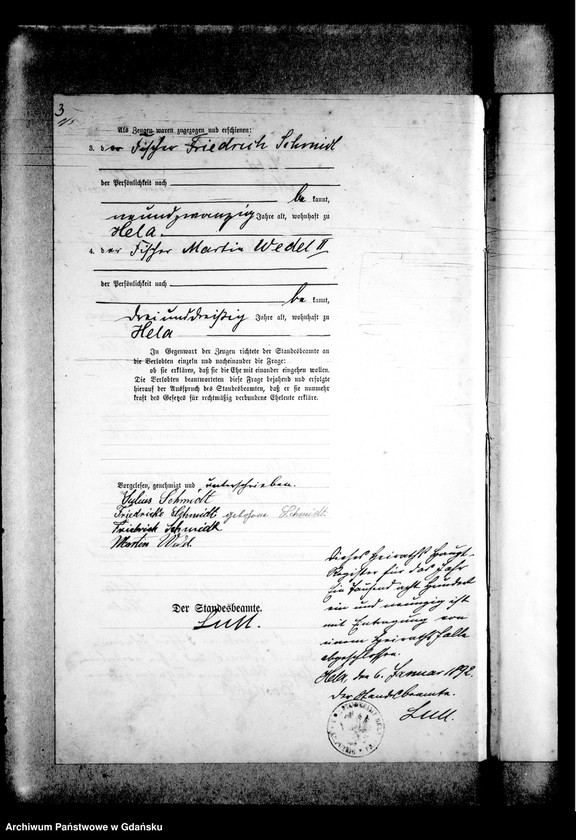 3
Als Zeugen waren zugezogen und erschienen:
3. der Fischer Friedrich Schmidt
der Persönlichkeit nach
be kannt,
neunundzwanzig Jahre alt, wohnhaft zu
Hela.
4. der Fischer Martin Wedel II
der Persönlichkeit nach
be kannt,
dreiunddreißig Jahre alt, wohnhaft zu
Hela
In Gegenwart der Zeugen richtete der Standesbeamte an
die Verlobten einzeln und nacheinander die Frage:
ob sie erklären, daß sie die Ehe mit einander eingehen wollen.
Die Verlobten beantworteten diese Frage bejahend und erfolgte
hierauf der Ausspruch des Standesbeamten, daß er sie nunmehr
kraft des Gesetzes für rechtmäßig verbundene Eheleute erkläre.
Vorgelesen, genehmigt und unterschrieben.
Julius Schmidt
Friedricke Schmidt geborene Schmidt
Friedrich Schmidt
Martin
Der Standesbeamte.
Dieses Heiraths Haupt-
Register für das Jahr
Ein Tausend acht Hundert
ein und neunzig ist
mit Eintragung von
einem Heirathsfalle
abgeschlossen.
Hela, den 6. Januar 1892.
Der Standesbeamte.
Archiwum Państwowe w Gdańsku